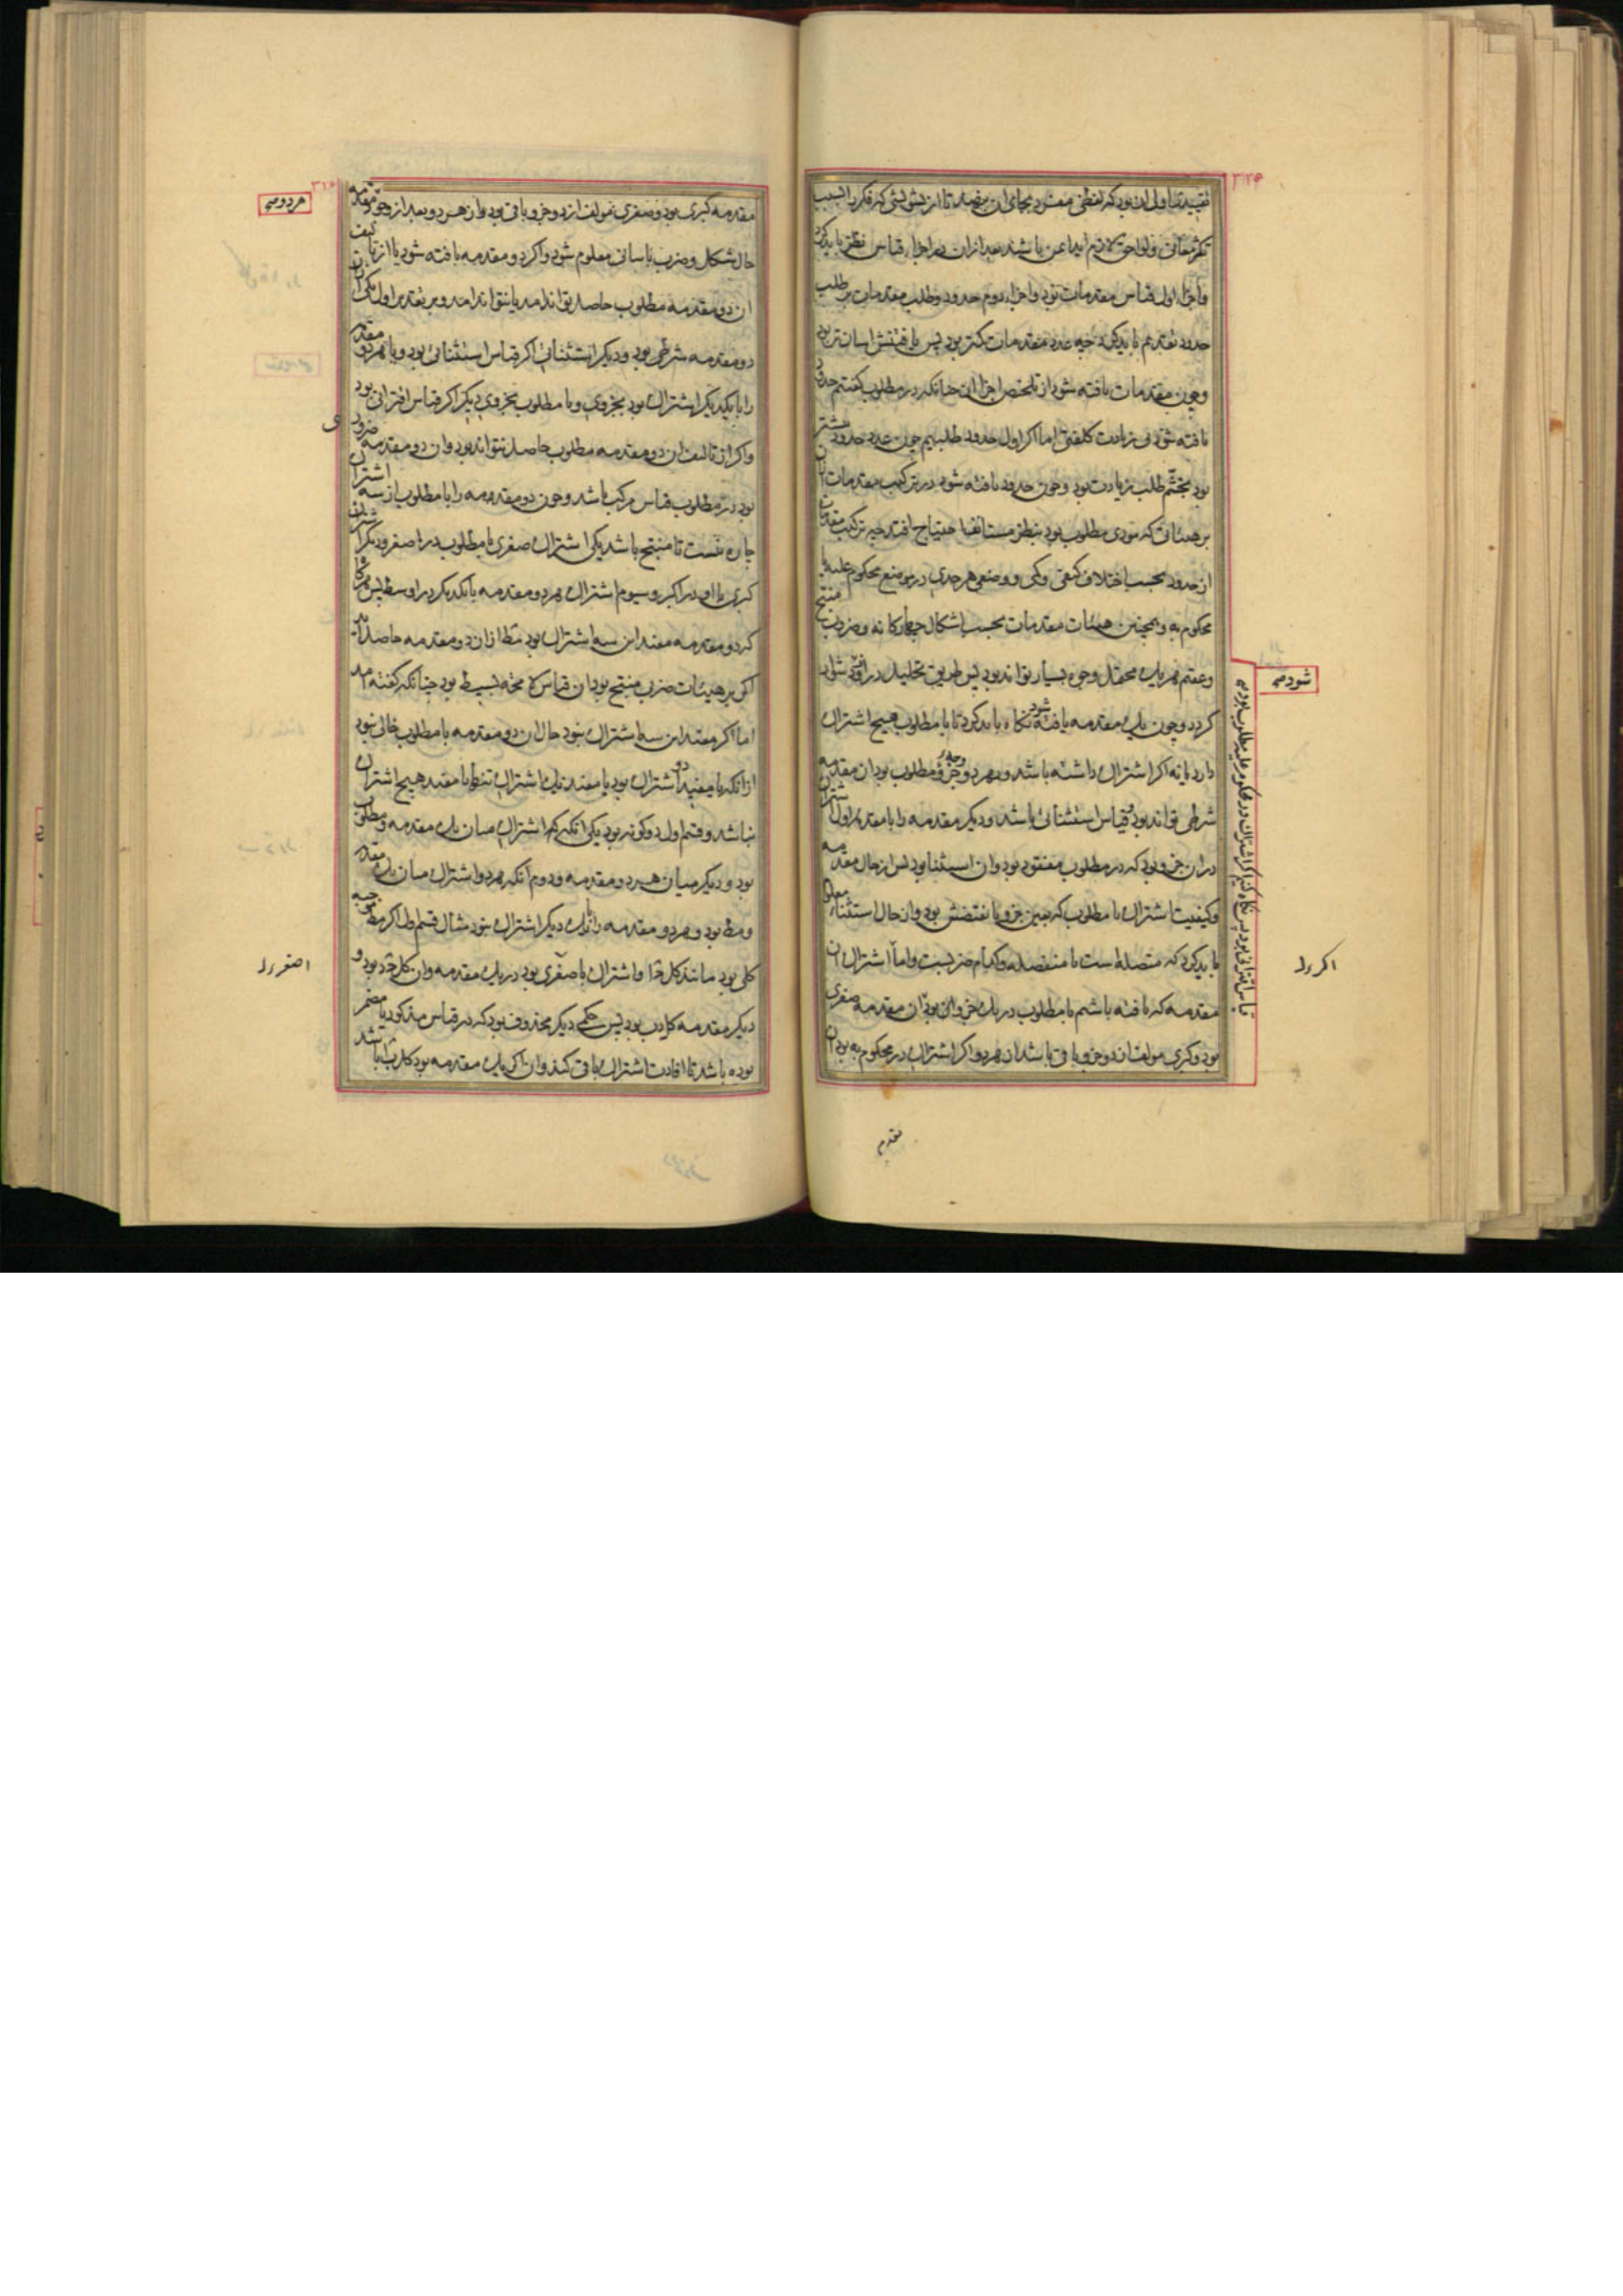 ۳۲۵
تقیید تناول آن بود که لفظی مفرد بجای آن بنهند تا از تشویش که فکر را بسبب
تکثر معانی ولواحق لازم آید ایمن باشند بعد ازان در اجزاء قیاس نظر باید کرد
واجزاء اول قیاس مقدمات بود واجزاء دوم حدود وطلب مقدمات بر طلب
حدود تقدیم باید کرد چه عدد مقدمات کمتر بود پس یافتنش اسان تر بود
وچون مقدمات یافته شود از تلخیص اجزا ان چنانکه در مطلوب گفتیم حدود
یافته شود بی زیادت کلفتی اما اکر اول حدود طلبیم چون عدد حدود بیشتر
بود تجشم طلب زیادت بود وچون حدود یافته شود در ترکیب مقدمات ان
بر هیئاتی که مودی مطلوب بود بنظر مستانف احتیاج افتد چه ترکیب مقدمات
از حدود بحسب اختلاف کیفی وکمی ووضعی هر حدی در موضع محکوم علیه یا
محکوم به وهمچنین هیئات مقدمات بحسب اشکال چهارکانه وضروب منتج
وعقیم هر یک محتمل وجوه بسیار تواند بود پس طریق تحلیل دراز ودشوار
کردد وچون یک مقدمه یافته شود نکاه باید کرد تا با مطلوب هیچ اشتراک
دارد یا نه اکر اشتراک داشته باشد ودر هر دو جزو مطلوب بود ان مقدمه
شرطی تواند بود وقیاس استثنائی باشد ودیکر مقدمه را با مقدمه اول اشتراک
دران جزو بود که در مطلوب مفقود بود وان استثنا بود پس از حال مقدمه
وکیفیت اشتراک با مطلوب که بعین جزو یا نقیضش بود وان حال استثنا معلوم
باید کرد که متصله است یا منفصله وکدام ضربست واما اشتراک ان
مقدمه که یافته باشیم با مطلوب در یک جزو ان بود ان مقدمه صغری
بود وکبری مولف ان دو جزو باقی باشد ان هر دو اکر اشتراک در محکوم به بود ان
شود صح
قیاس اقترانی بود پس نکاه کنیم اکر اشتراک در محکوم علیه مطلوب بود صح
اکبر را
مقدم
۳۱۶
مقدمه کبری بود وصغری مولف از دو جزو باقی بود وان هر دو بعد از وجود مقدمه
حال شکل وضرب باسانی معلوم شود واکر دو مقدمه یافته شود یا از تالیف
ان دو مقدمه مطلوب حاصل تواند امد یا نتواند امد وبر تقدیر اول یکی ازان
دو مقدمه شرطی بود ودیکر استثنائی اکر قیاس استثنائی بود ویا هر دو مقدمه
را با یکدیکر اشتراک بود بجزوی وبا مطلوب بجزوی دیکر اکر قیاس اقترانی بود
واکر از تالیف ان دو مقدمه مطلوب حاصل نتواند بود وان دو مقدمه ضروری
بود در مطلوب قیاس مرکب باشد وچون دو مقدمه را با مطلوب از سه اشتراک
چاره نیست تا منتج باشد یکی اشتراک صغری با مطلوب در اصغر ودیکر اشتراک
کبری با او در اکبر وسیوم اشتراک هر دو مقدمه با یکدیکر در اوسط پس هر کاه
که دو مقدمه مفید این سه اشتراک بود مط ازان دو مقدمه حاصل اید
اکر بر هیئات ضربی منتج بود ان قیاس لا محه بسیط بود چنانکه گفته امد
اما اکر مفید این سه اشتراک نبود حال ان دو مقدمه با مطلوب خالی نبود
از انکه یا مفید دو اشتراک بود یا مفید یک اشتراک تنها یا مفید هیچ اشتراک
نباشد وقسم اول دو کونه بود یکی انکه یک اشتراک میان یک مقدمه ومطلوب
بود ودیکر میان هر دو مقدمه ودوم انکه هر دو اشتراک میان یک مقدمه
ومط بود وهر دو مقدمه را با یک دیکر اشتراک نبود مثال قسم اول اکر مط موجبه
کلی بود مانند کل ج ا واشتراک با صغری بود در یک مقدمه وان کل ج د بود و
دیکر مقدمه کل د ب بود پس حکمی دیکر محذوف بود که در قیاس مذکور یا مضمر
بوده باشد تا افادت اشتراک باقی کند وان اکر یک مقدمه بود کل ب ا باشد
هر دو صح
اصغر را